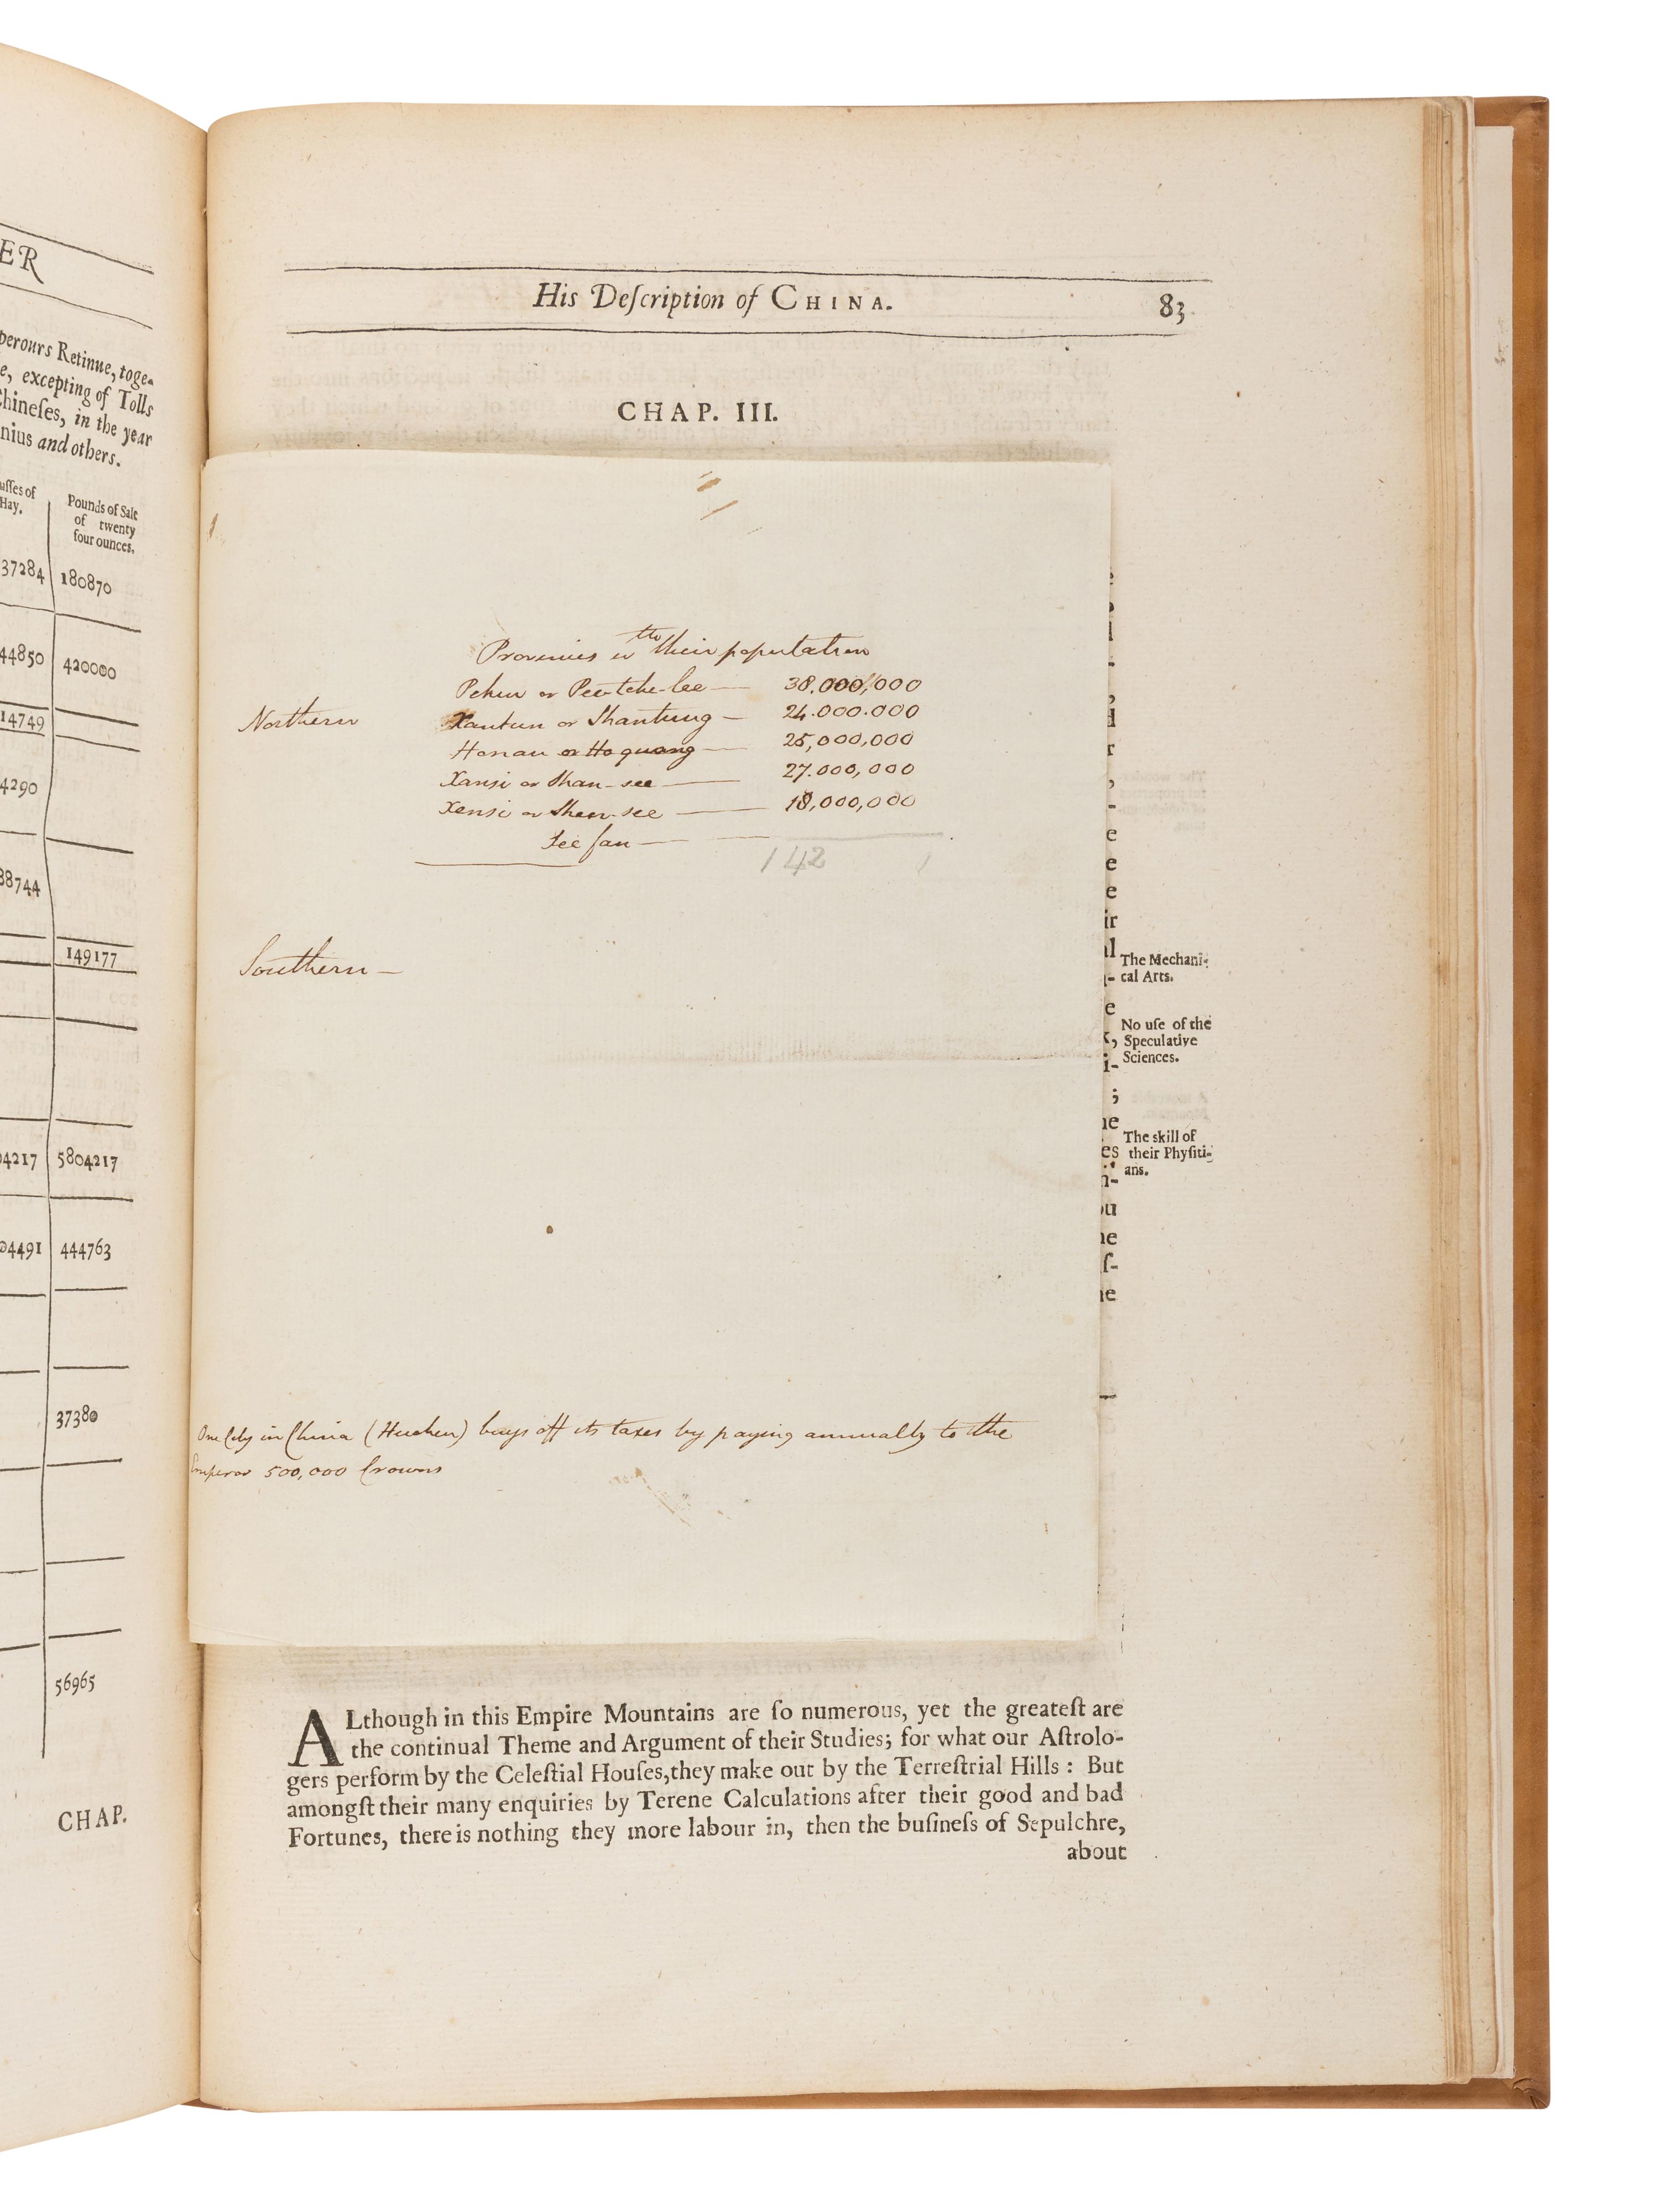 ER
perours Retinue, toge-
e, excepting of Tolls
Chineſes, in the year
nius and others.
uſſes of
Hay.
Pounds of Salt
of twenty
four ounces.
37284 180870
44850 420000
14749
4290
88744
149177
04217 5804217
04491 444763
37380
56965
CHAP.
His Deſcription of CHINA. 83
CHAP. III.
Provinces their population
Pekin or Pee-tche-lee — 38.000,000
Northern
Xantun or Shantung — 24.000.000
Honan or Hoquang — 25,000,000
Xansi or Shan-see — 27.000,000
Xensi or Shen-see — 18,000,000
See fan —
142
Southern —
One City in China (Hucheu) buys off its taxes by paying annually to the
Emperor 500,000 Crowns
The Mechani-
cal Arts.
No uſe of the
Speculative
Sciences.
The skill of
their Phyſiti-
ans.
ALthough in this Empire Mountains are ſo numerous, yet the greateſt are
the continual Theme and Argument of their Studies; for what our Aſtrolo-
gers perform by the Celeſtial Houſes, they make out by the Terreſtrial Hills : But
amongſt their many enquiries by Terene Calculations after their good and bad
Fortunes, there is nothing they more labour in, then the buſineſs of Sepulchre,
about